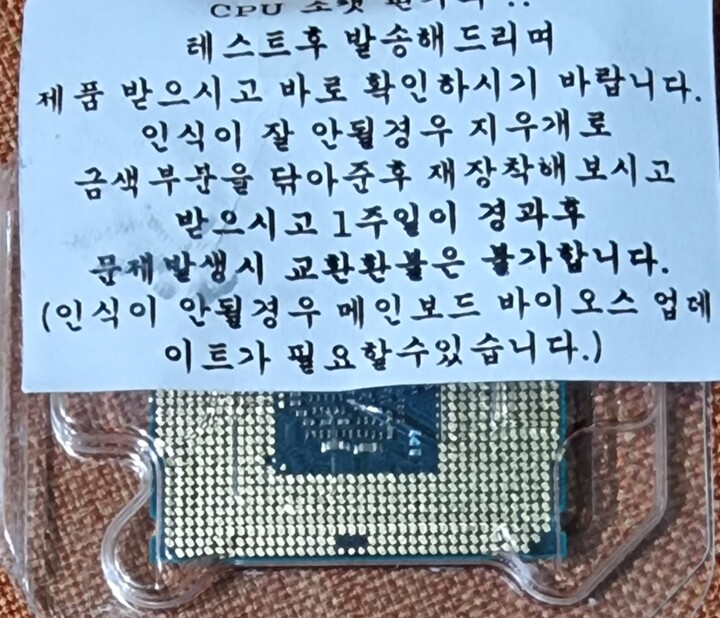 CPU
테스트후 발송해드리며
제품 받으시고 바로 확인하시기 바랍니다.
인식이 잘 안될경우 지우개로
금색부분을 닦아준후 재장착해보시고
받으시고 1주일이 경과후
문제발생시 교환환불은 불가합니다.
(인식이 안될경우 메인보드 바이오스 업데
이트가 필요할수있습니다.)